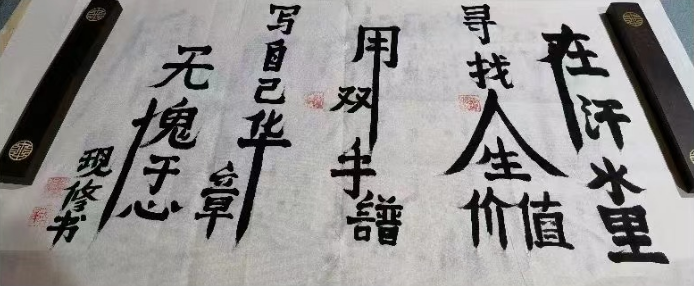 在汗水里
寻找人生价值
用双手譜
写自己华章
无愧于心
现修书